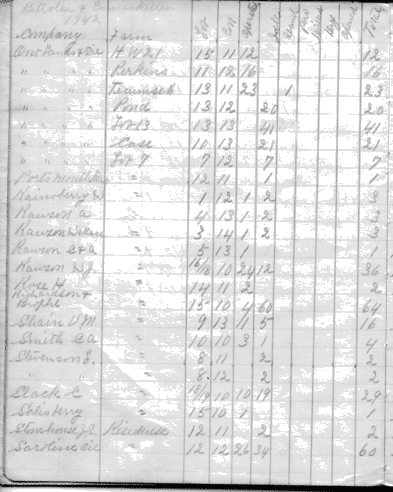 Petrolea & Enniskillen
1942
Company Farm Lot Con Total
H W 21 15 11 12 12
" " " " Perkins 11 12 16 16
" " " " Tecumseh 13 11 23 1 23
" " " " Pond 13 12 20 20
" " " " Lot 13 13 13 41 41
" " " " Case 10 13 21 21
" " " " Lot 7 7 12 7 7
" 12 11 1 1
" 1 12 1 2 3
Rawson A " 4 13 1 2 3
Rawson " 3 14 1 2 3
Rawson C & A " 5 13 1 1
Rawson W J " 10 24 12 36
Rose H " 14 11 2 2
Richardson &
Knight " 15 10 4 60 64
Shain V M " 9 13 11 5 16
Smith C A " 10 10 3 1 4
Stevenson J. " 8 11 2 2
" " 8 12 2 2
Slack C " 10 10 19 29
Salsberry " 15 10 1 1
Stonehouse J E 12 11 2 2
Sarolina Oil 12 12 26 34 60